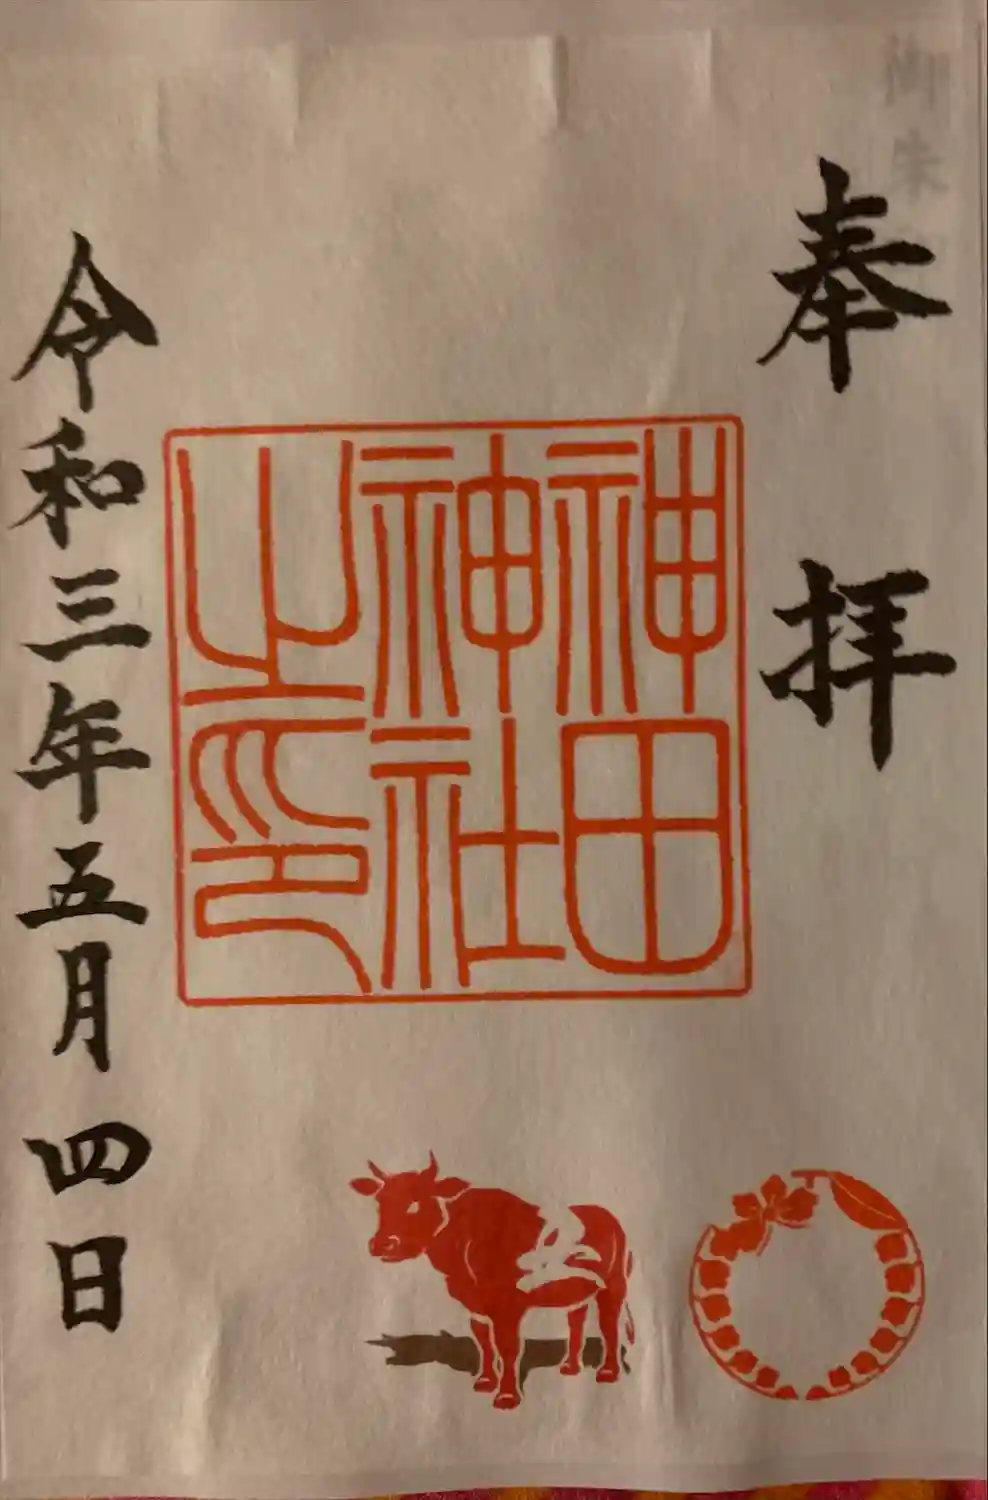 奉拝
神田
神社
之印
令和三年五月四日
御朱